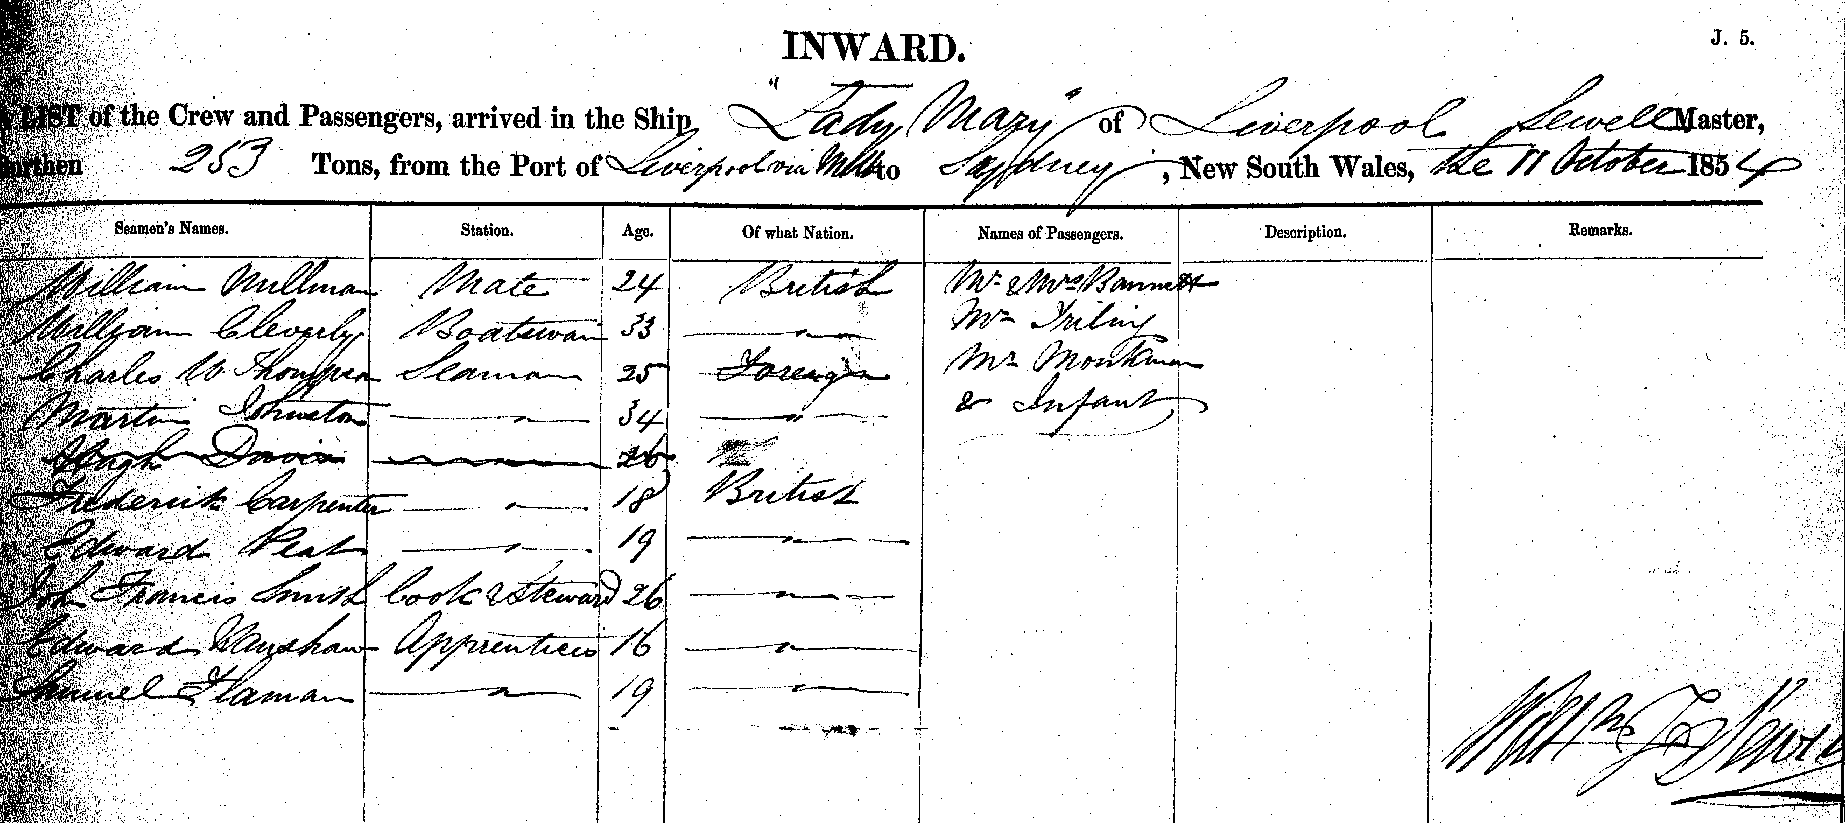 INWARD.
J. 5.
LIST of the Crew and Passengers, arrived in the Ship "Lady Mary" of Liverpool Sewell Master,
Burthen 253 Tons, from the Port of Liverpool via to Sydney, New South Wales, the 11 October 1854
Seamen's Names. Station. Age. Of what Nation. Names of Passengers. Description. Remarks.
William Millman Mate 24 British Mr & Mrs Bannett
William Cleverly Boatswain 33 — " — Mr
Charles W Thompson Seaman 25 Foreign Mr Monkman
Martin Johnston — " — 34 — " — & Infant
Hugh Davis 26
Frederick Carpenter — " — 18 British
Edward Peat — " — 19 — " —
John Francis Smith Cook & Steward 26 — " —
Edward Apprentice 16 — " —
Samuel Flaman — " — 19 — " —
Willm Sewell